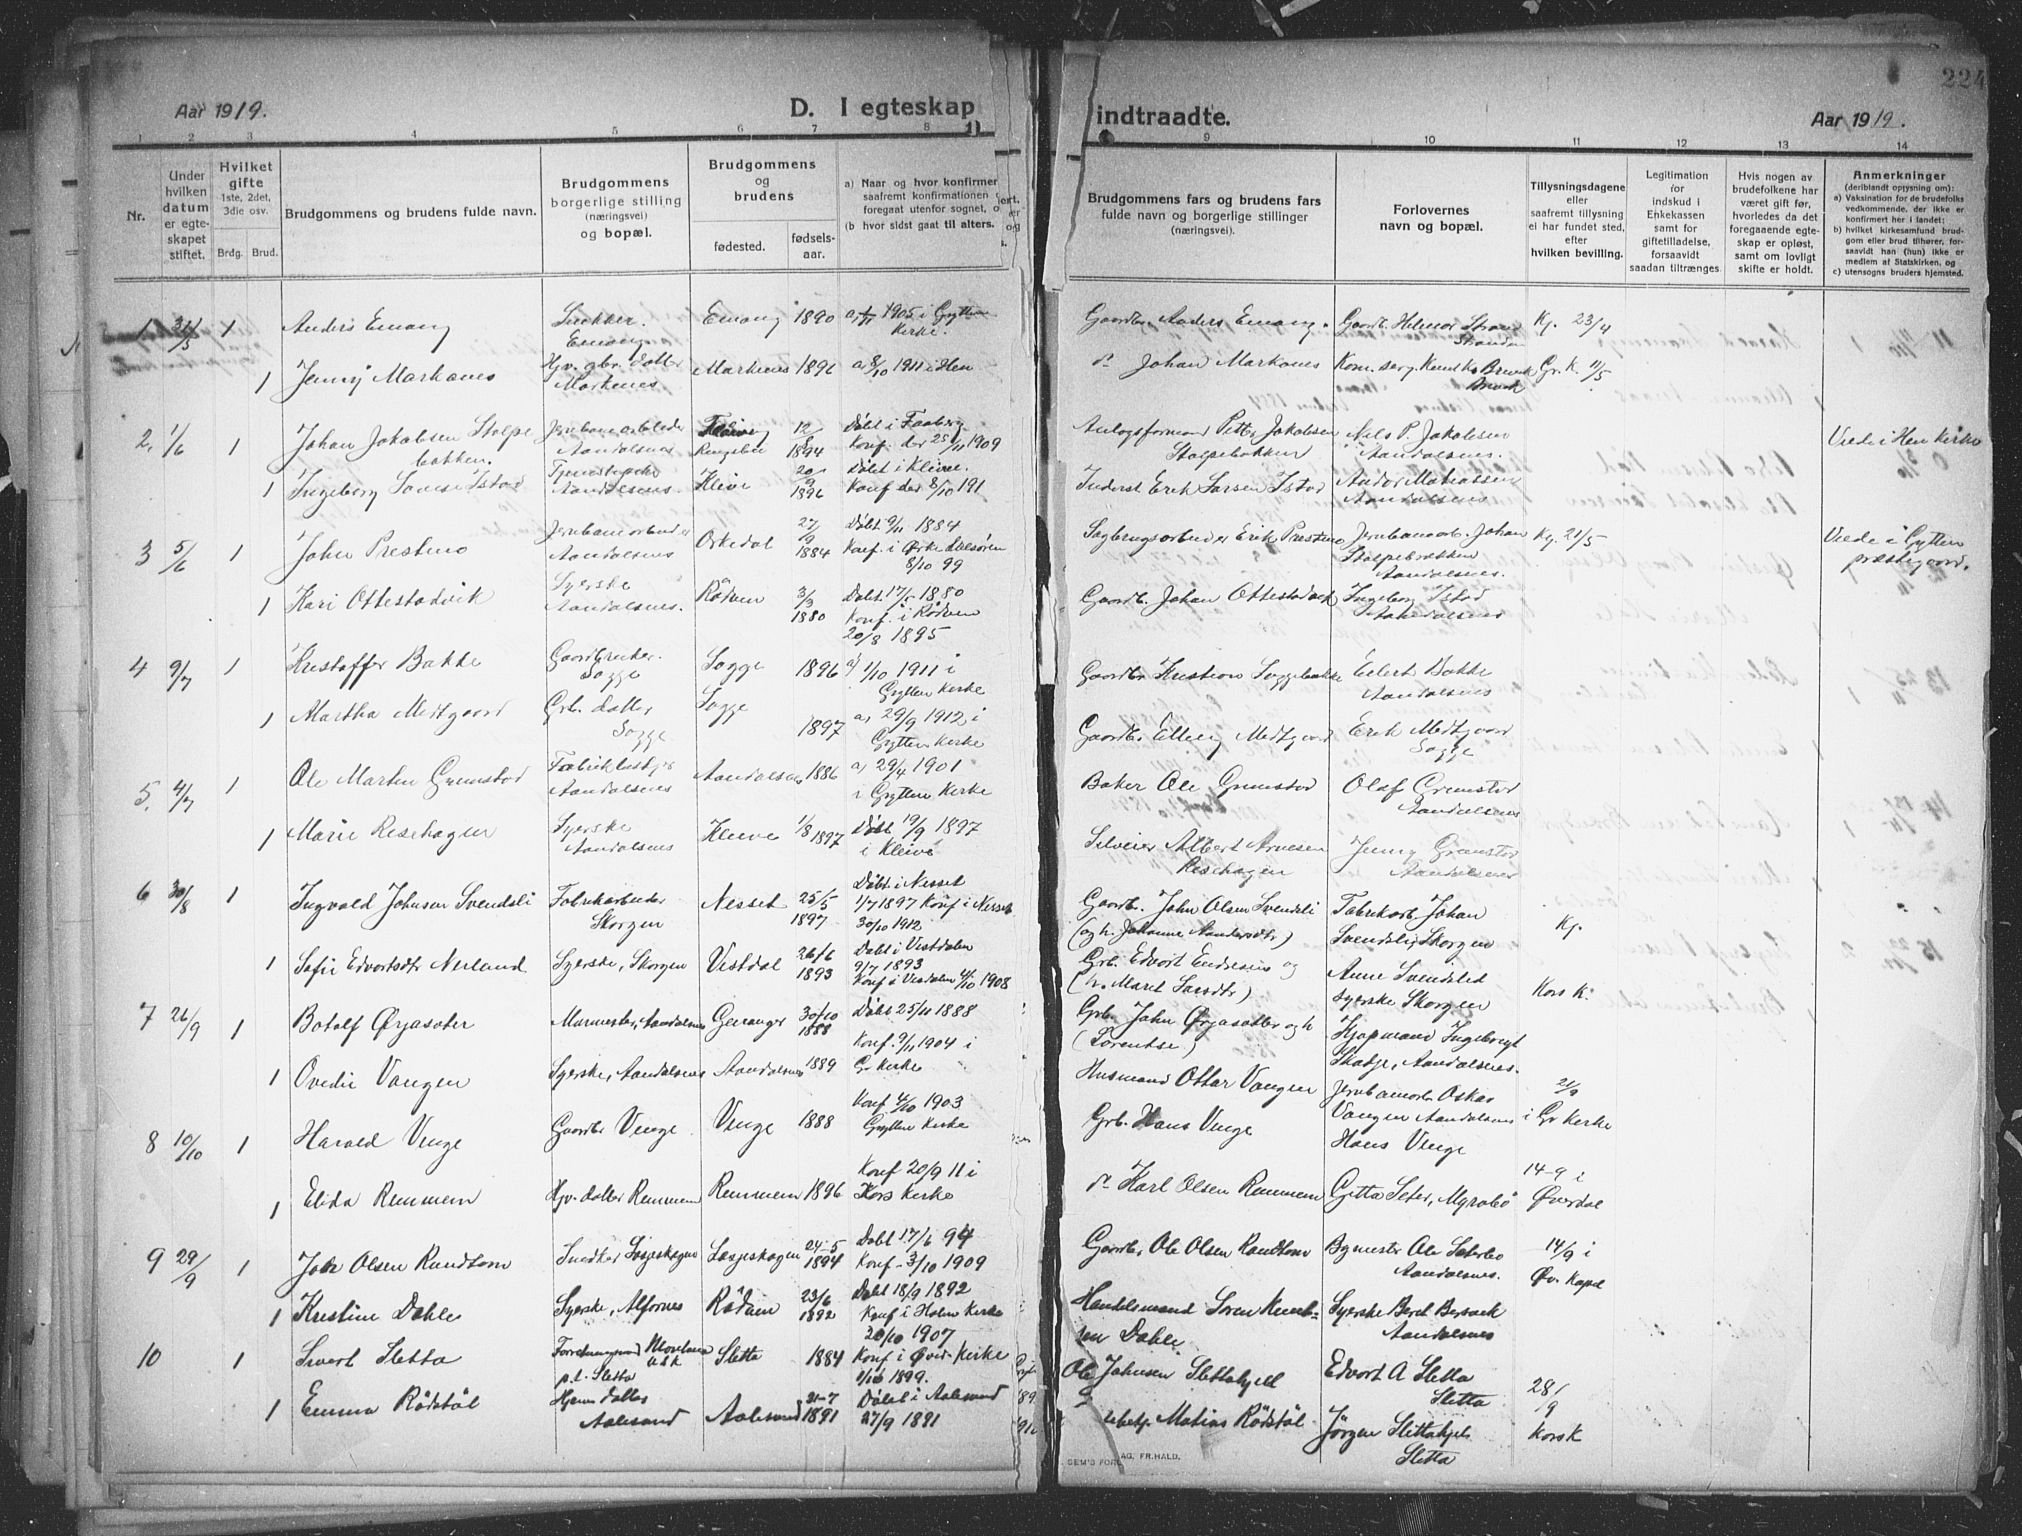 Aar 1919.
D. I egteskap
indtraadte.
Aar 1919.
224
1 2 3 4 5 6 7 8 9 10 11 12 13 14
Nr.
Under hvilken datum er egteskapet stiftet.
Hvilket gifte 1ste, 2det, 3die osv.
Brdg. Brud.
Brudgommens og brudens fulde navn.
Brudgommens borgerlige stilling (næringsvei) og bopæl.
Brudgommens og brudens
fødested.
fødsels-aar.
a) Naar og hvor konfirmer
saafremt konfirmationen
foregaat utenfor sognet, o
(b hvor sidst gaat til alters.
Brudgommens fars og brudens fars
fulde navn og borgerlige stillinger
(næringsvei).
Forlovernes
navn og bopæl.
Tillysningsdagene
eller
saafremt tillysning
ei har fundet sted,
efter
hvilken bevilling.
Legitimation
for
indskud i
Enkekassen
samt for
giftetilladelse,
forsaavidt
saadan tiltrænges
Hvis nogen av
brudefolkene har
været gift før,
hvorledes da det
foregaaende egte-
skap er opløst,
samt om lovligt
skifte er holdt.
Anmerkninger
(deriblandt oplysning om):
a) Vaksination for de brudefolks
vedkommende, der ikke er
konfirmert her i landet;
b) hvilket kirkesamfund brud-
gom eller brud tilhører, for-
saavidt han (hun) ikke er
medlem af Statskirken, og
c) utensogns bruders hjemsted.
1 31/5 1 Anders Emang Snekker. Emang Emang 1890 1905 i Grytten Kirke. Gaardbr. Anders Emang. Gaardb. Helmer Strand Kj. 23/4
1 Jenny Markanes Hjv. gbr. datter Markenes Markenes 1896 a. 8/10 1911 i Hen dr Johan Markanes Kom. serg. Knud K. Brevik Brevik Gr. K. 11/5
2. 1/6 1 Johan Jakobsen Stolpe bakken. Jernbanearbeider Aandalsnes Ringebu 12/8 1894 Døbt i Faaberg Konf. der 1909 Petter Jakobsen Stolpebakken Nels P. Jakobsen Aandalsnes. Viede i Hen Kirke
1 Ingeborg Istad Aandalsnes Kleive 20/9 1896 Døbt i Kleive. Konf der 8/10 191 Inderst Erik Larsen Istad Andor Mathiassen Aandalsnes
3 5/6 1 John Prestmo Jernbanearbeider Aandalsnes Orkedal 27/9 1884 Døbt 9/11 1884 Konf. i Ørkedalsøren 8/10 99 Sagbrugsarbeider Erik Prestmo Jernbanearb. Johan Stolpebakken Aandalsnes. Kj. 21/5 Viede i Grytten præstegaard.
1 Kari Ottestadvik Syerske Aandalsnes. Rödven 3/3 1880 Døbt 17/5 1880 Konf. i Rödven 20/8 1895 Gaardb. Johan Ottestadvik Ingeborg Istad Aandalsnes
4 9/7 1 Kristoffer Bakke Gaardbruker. Sogge Sogge 1896 a) 1/10 1911 i Grytten Kirke Gaardbr Kristian Soggebakke Edert Bakke Aandalsnes
1 Martha Medtgaard Grb. datter Sogge Sogge 1897 a) 29/9 1912 i Grytten Kirke Gaardbr. Elling Medtgaard Erik Medtgaard Sogge
5. 4/7 1 Ole Martin Grønstad Aandalsnes Aandalsnes 1886 a) 29/4 1901 i Grytten Kirke Baker Ole Grønstad Olaf Grønstad Aandalsnes
1 Marie Resehagen Syerske Aandalsnes Kleive 1/8 1897 Døbt 19/9 1897 i Kleive Albert Arnesen Resehagen Jenny Grønstad Aandalsnes
6 30/8 1 Ingvald Johnsen Svendsli Fabrikarbeider Skorgen Nesset 25/5 1897 Døbt i Nesset 1/7 1897 Konf i Nesset 30/10 1912 Gaardb. John Olsen Svendsli (og h. Johanne Andersdtr) Fabrikarb Johan Svendsli, Skorgen Kj.
1 Sofie Edvartsdtr Nerland Syerske, Skorgen Vistdal 26/6 1893 Døbt i Vistdalen 9/7 1893 Konf i Visdalen 4/10 1908 Grb. Edvart Endresen og (h. Maret Larsdtr) Anne Svendslid Syerske Skorgen Kors K.
7 26/9 1 Botolf Ørjasæter Murmester, Aandalsnes Geiranger 30/10 1888 Døbt 25/11 1888 Konf. 9/11 1904 i Grb. John Ørjasæter og h (Lorentse) Kjøpmand Ingebregt Skadje, Aandalsnes.
1 Ovedie Vangen Syerske, Aandalsnes Aandalsnes 1889 Gr Kirke Husmand Ottar Vangen Jernbanearb Oskar Vangen Aandalsnes 21/9 i Gr Kirke
8 10/10 1 Harald Venge Gaardbr Venge Venge 1888 Konf 4/10 1903 Grytten Kirke Grb. Hans Venge Hans Venge
1 Elida Remmem Hjv. datter Remmem Remmem 1896 Konf 20/9 11 i Kors Kirke dr Karl Olsen Remmem Gitta Seter, Myrabö 14-9 i Øverdal
9 29/9 1 Joh Olsen Randtom Snedker Lesjeskogen Lesjeskogen 24-5 1894 Døbt 17/6 94 Konf - 3/10 1909 Gaardbr Ole Olsen Randtom Bygmester Ole Seterbo Aandalsnes. 14/9 i Øv. Kapel
1 Kristine Dahle Syerske, Alfarnes Rödven 23/6 1892 Døbt 18/9 1892 Konf i Holm Kirke 20/10 1907 Handelsmand Søren Knud-sen Dahle Syerske Beret Aandalsnes
10 1 Sivert Sletta p.t. Sletta Sletta 1884 Konf i Øver-Kirke 1/10 1899. Ole Johnsen Slettahjell Edvart A Sletta Sletta 28/9
1 Emma Rödstöl Hjemv datter Aalesund Aalesund 21-7 1891 Döbt i Aalesund 27/9 1891 Matias Rödstöl Jörgen Slettahjel Sletta Kors K
SEM'S FOR AG. FR. HALD.